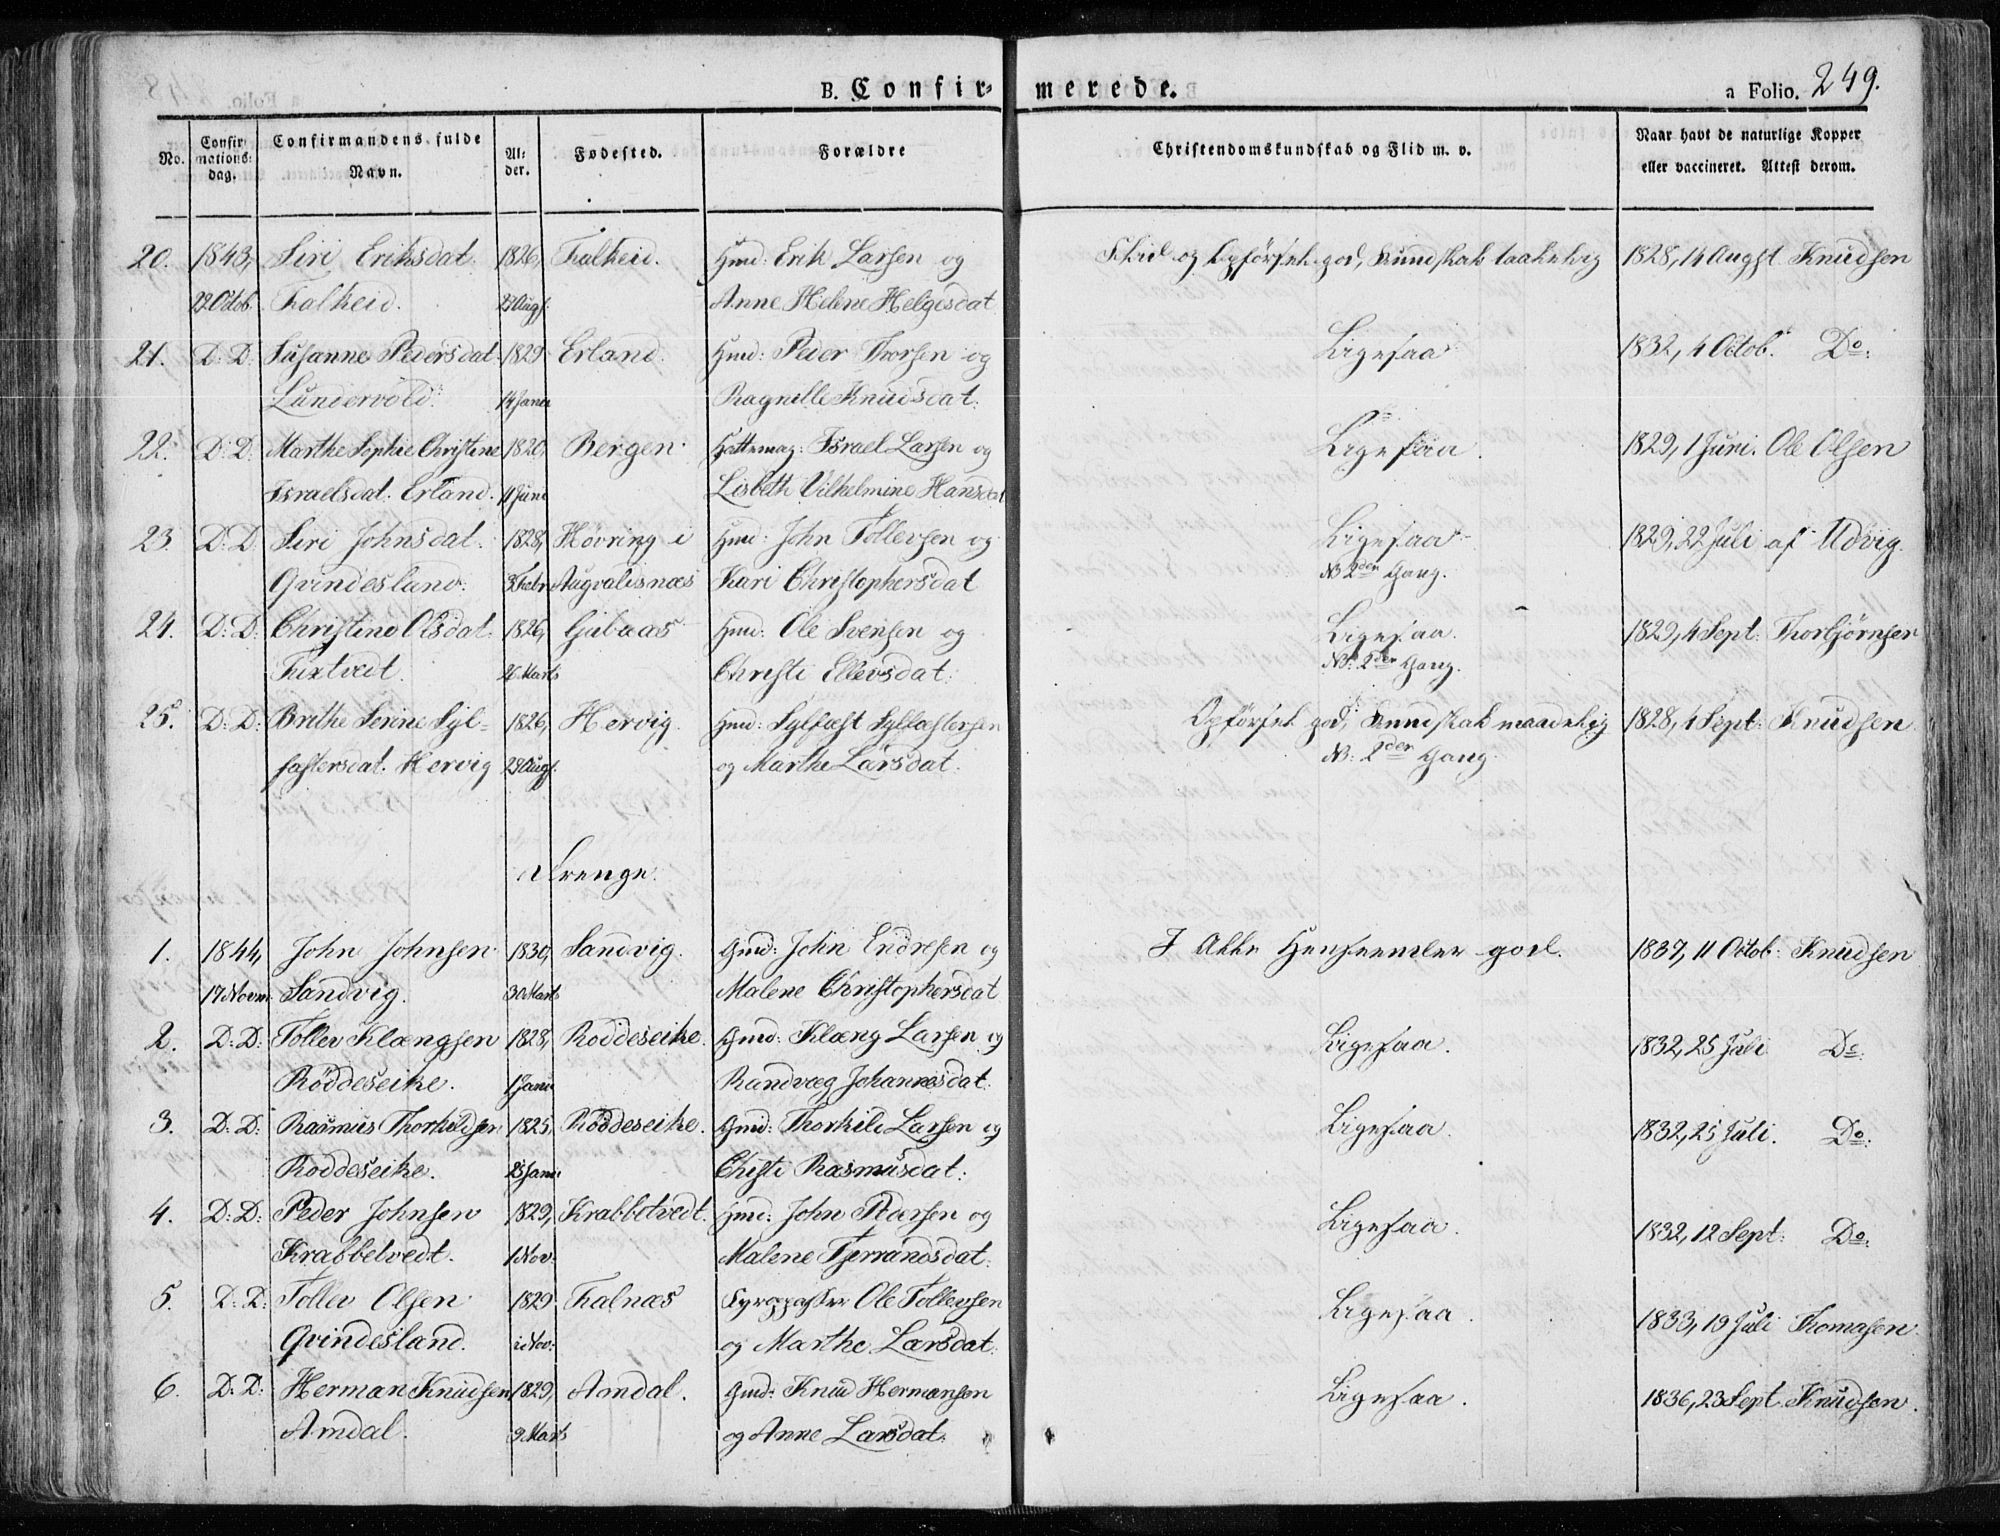 B. Confir-merede.
a Folio. 249.
No.
Confirmations: dag.
Confirmandens fulde Navn.
Alder.
Fødested.
Forældre
Christendomskundskab og Flid m. v.
Naar havt de naturlige Kopper eller vaccineret. Attest derom.
20. 1843, Siri Eriksdat 1826, Falkeid. Gmd: Erik Larsen og Flid og Opførsel god, Kundskab taalelig 1828, 14 Augst Knudsen
22 Octob. Falkeid. Augs. Anne Helene Helgesdat
21. D: D. Susanne Pedersdat 1829 Erland. Gmd: Peder Thorsen og Ligesaa 1832, 4 Octob. Do:
Lundervold. 14 Janu Ragnille Knudsdat.
22. D: D. Marthe Sophie Christine 1820, Bergen. Hattemag: Israel Larsen og Ligesaa. 1829, 1 Juni. Ole Olsen
Israelsdat. Erland. 11 Juni Lisbeth Vilhelmine Hansdat
23. D: D. Siri Johnsdat. 1828, Høvring i Gmd: John Tollevsen og Ligesaa 1829, 22 Juli af Udvig.
Qvindesland. 3 Febr Augvaldsnæs Kari Christophersdat NB 2den Gang.
24. D: D: Christine Olsdat. 1826, Gmd: Ole Svensen og Ligesaa. 1829, 4 Sept: Thorbjørnsen
Tixtvedt. 26 Marts Christi Ellevsdat. NB: 2den Gang.
25. D: D: Brithe Serine Syl- 1826, Hervig. Gmd: Sylfæst Sylfæstersen Opførsel god, Kundskab maadelig 1828, 4 Sept: Knudsen
fæstersdat. Hervig 29 Augs. og Marthe Larsdat. NB: 2den Gang.
Drenge.
1. 1844, John Johnsen 1830, Sandvig. Gmd: John Endresen og I Alle Henseender god. 1837, 11 Octob: Knudsen
17 Novm Sandvig. 30 Marts Malene Christophersdat
2. D: D: Tollev Klængsen 1828, Røddeseike. Gmd: Klæng Larsen og Ligesaa. 1832, 25 Juli Do:
Røddeseike. 1 Janu Randvæg Johannesdat.
3. D: D: Rasmus Thorkildsen 1825, Røddeseike. Gmd: Thorkild Larsen og Ligesaa. 1832, 25 Juli. Do:
Røddeseike. 25 Janu: Christi Rasmusdat.
4. D: D: Peder Johnsen 1829, Krabbetvedt. Gmd: John Pedersen og Ligesaa. 1832, 12 Sept: Do:
Krabbetvedt. 1 Nov: Malene Tjerrandsdat.
5. D: D: Tollev Olsen 1829 Falnæs Fyrpasser Ole Tollevsen Ligesaa. 1833, 19 Juli Thomasen.
Qvindesland. Nov: og Marthe Larsdat.
6. D: D: Herman Knudsen 1829, Amdal. Gmd: Knud Hermansen Ligesaa. 1836, 23 Sept. Knudsen.
Amdal. 9 Marts og Anne Larsdat.